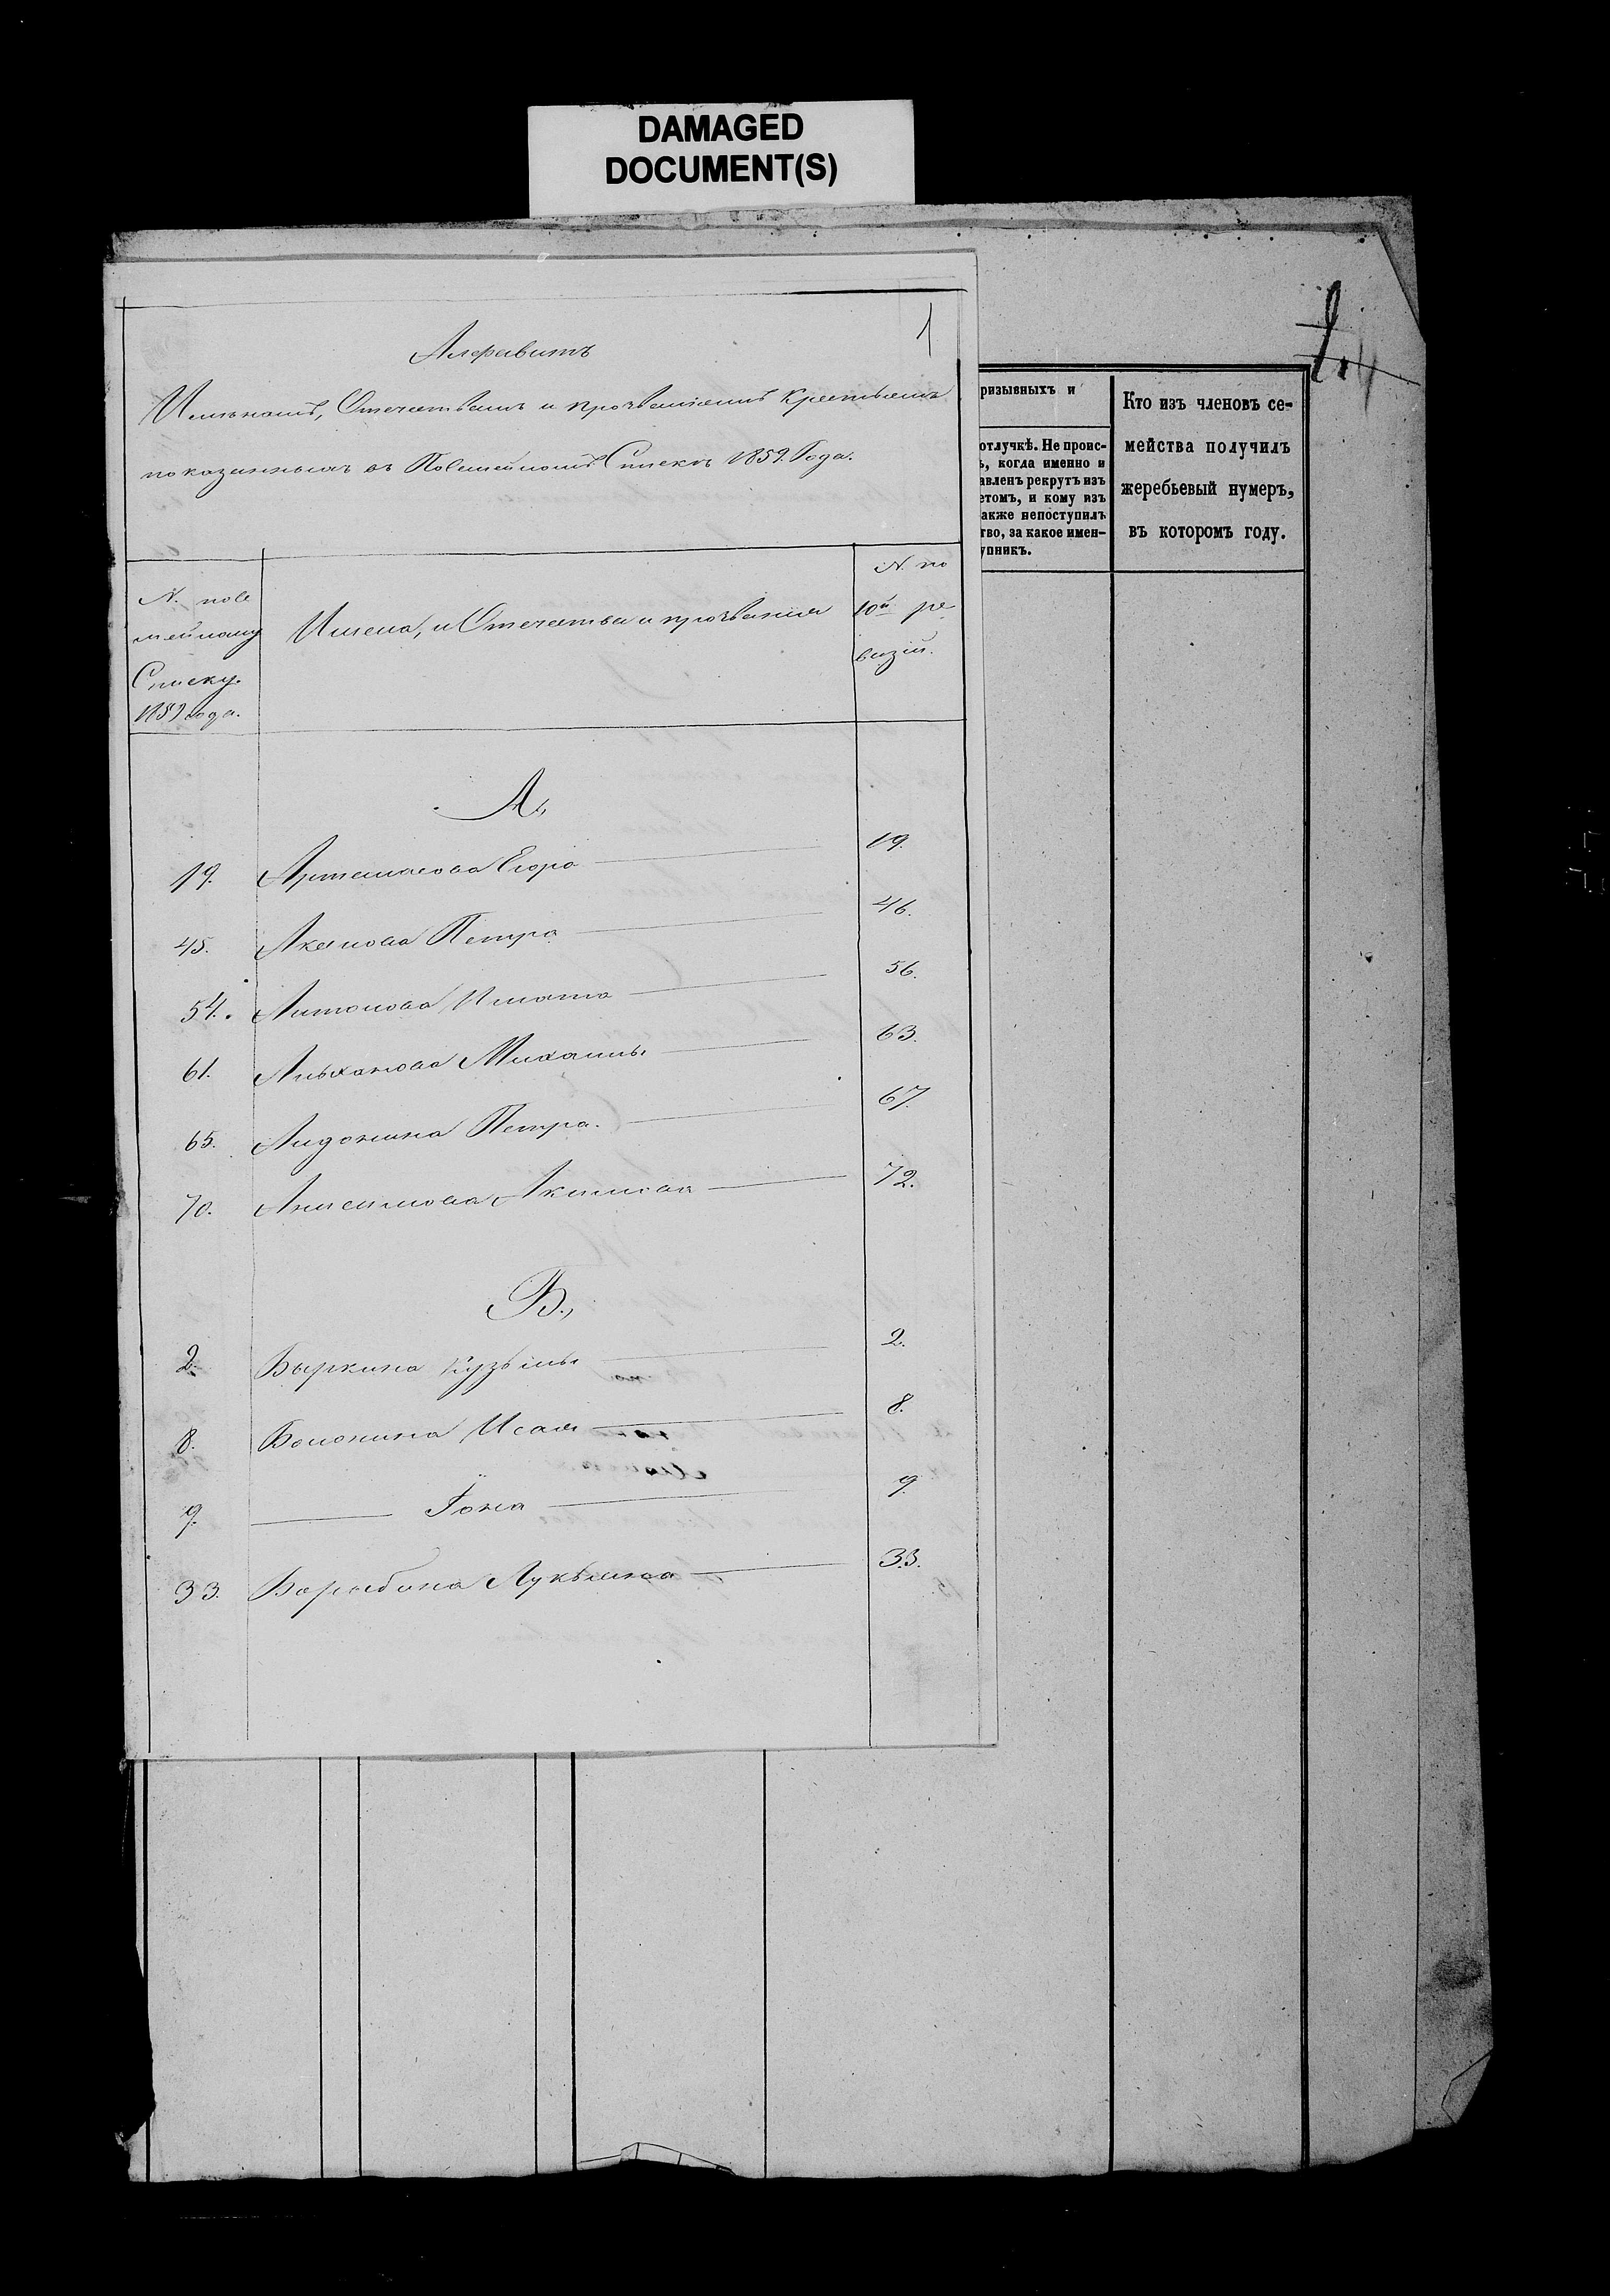 DAMAGED
DOCUMENT(S)
1
Алфавитъ
Имянамъ, Отечествамъ и прозваніямъ крестьянъ
показаннымъ въ Посемейномъ Спискѣ 1859. Года.
N. посе
мейному
Списку
1859 года.
Имена, и Отечества и прозванія
N. по
10й ре
визіи.
А.,
19. Артамасова Егора 19.
45. Акамова Петра 46.
54. Антонова Игната 56.
61. Альханова Михаилы 63.
65. Алдонина Петра. 67.
70. Анисимова Акимова 72.
Б.,
2. Быркина Кузьмы 2.
8. Болонина Исая 8.
9. Іона 9.
33. Барыбина Лукьяна 33.
ризывныхъ и
отлучкѣ. Не проис-
ь, когда именно и
авленъ рекрутъ изъ
етомъ, и кому изъ
акже непоступилъ
тво, за какое имен-
упникъ.
Кто изъ членовъ се-
мейства получилъ
жеребьевый нумеръ,
въ которомъ году.